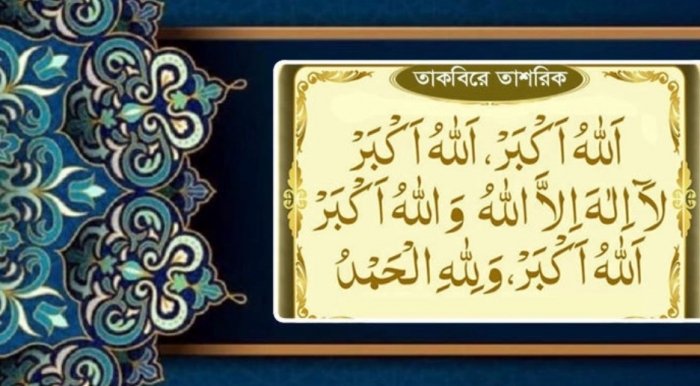 তাকবিরে তাশরিক
اَللهُ اَكْبَرْ، اَللهُ اَكْبَرْ
لَآ اِلٰهَ اِلاَّ اللهُ وَ اللهُ اَكْبَرْ
اَللهُ اَكْبَرْ، وَلِلهِ الْحَمْدُ